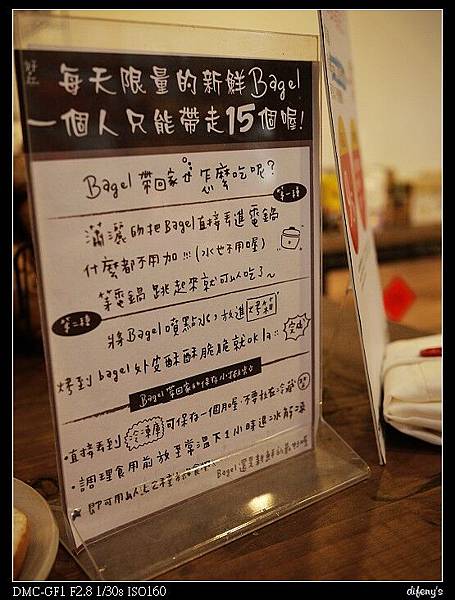 每天限量的新鮮Bagel
一個人只能帶走15個喔!
Bagel帶回家 怎麼吃呢?
第一種
瀟灑的把Bagel直接丟進電鍋
什麼都不用加!!!(水也不用喔)
等電鍋跳起來就可以吃了~
第二種
將Bagel噴點水,放進烤箱
烤到bagel外皮酥酥脆脆就ok la::
完成
Bagel帶回家的保存小
·直接丟到 可保存一個月喔,不要放在冷藏
·調理食用前放至常溫下1小時退冰解凍
即可用以上2種方
Bagel還是新鮮的最好喔
DMC-GF1 F2.8 1/30s ISO160
difeny's